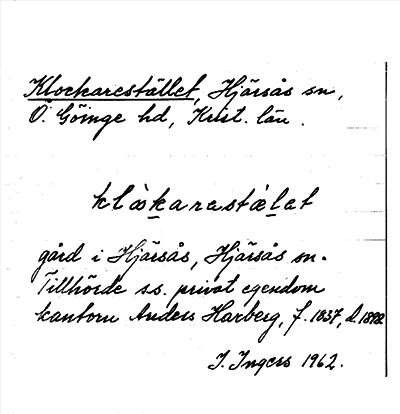 Klockarestället, Hjärsås sn,
Ö. Göinge hd, Krist. län.
klå̀karestä̀lat
gård i Hjärsås, Hjärsås sn.
Tillhörde s.s. privat egendom
kantorn Anders Harberg, f. 1837, d.
I. Ingers 1962.